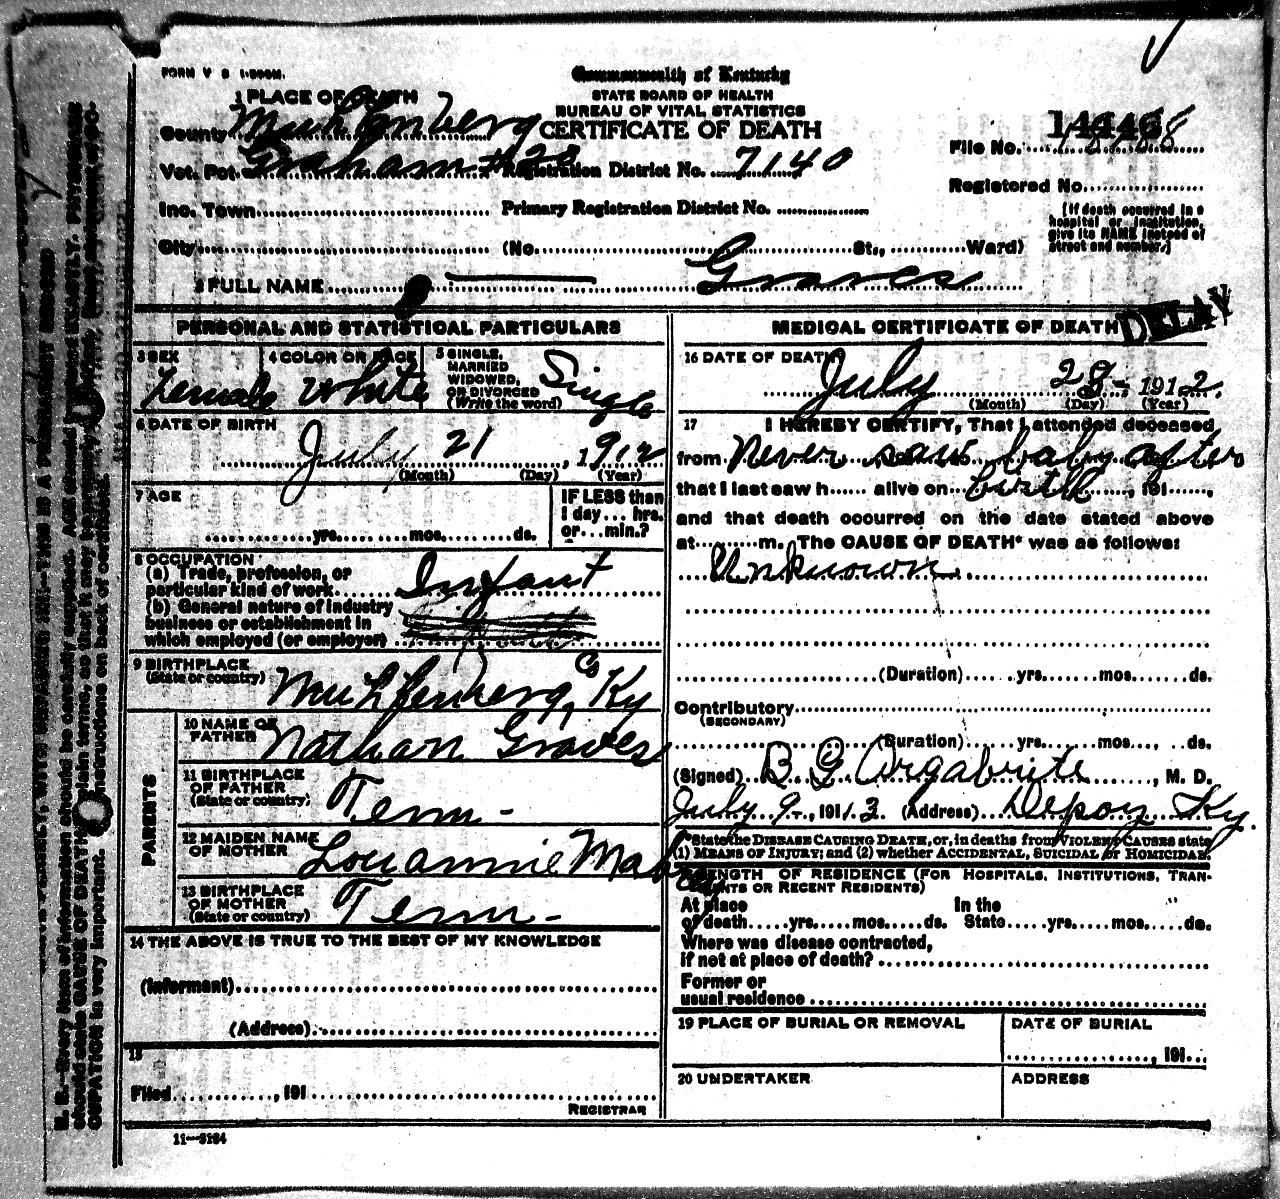 FORM V S 1-500M.
Commonwealth of Kentucky
STATE BOARD OF HEALTH
BUREAU OF VITAL STATISTICS
CERTIFICATE OF DEATH
1 PLACE OF DEATH
County Muhlenberg
Vot. Pct. Graham #20 Registration District No. 7140
File No. 14446
Registered No.
Inc. Town Primary Registration District No.
City (No. St., Ward)
[If death occurred in a hospital or institution, give its NAME instead of street and number.]
2 FULL NAME Graves
PERSONAL AND STATISTICAL PARTICULARS
3 SEX Female
4 COLOR OR RACE White
5 SINGLE, MARRIED WIDOWED, OR DIVORCED (Write the word) Single
6 DATE OF BIRTH July 21, 1912
(Month) (Day) (Year)
7 AGE yrs. mos. ds.
IF LESS than 1 day... hrs. or... min.?
8 OCCUPATION
(a) Trade, profession, or particular kind of work Infant
(b) General nature of industry business or establishment in which employed (or employer)
9 BIRTHPLACE (State or country) Muhlenberg Co, Ky
PARENTS
10 NAME OF FATHER Nathan Graves
11 BIRTHPLACE OF FATHER (State or country) Tenn-
12 MAIDEN NAME OF MOTHER Louannie
13 BIRTHPLACE OF MOTHER (State or country) Tenn-
14 THE ABOVE IS TRUE TO THE BEST OF MY KNOWLEDGE
(Informant)
(Address)
15
Filed , 191
REGISTRAR
11-3184
MEDICAL CERTIFICATE OF DEATH
DELAY
16 DATE OF DEATH July 28- 1912.
(Month) (Day) (Year)
17 I HEREBY CERTIFY, That I attended deceased
from Never saw baby after
that I last saw h alive on birth, 191
and that death occurred on the date stated above
at m. The CAUSE OF DEATH* was as follows:
Unknown
(Duration) yrs. mos. ds.
Contributory
(SECONDARY)
(Duration) yrs. mos. ds.
(Signed) B G Argabrite, M. D.
July 9, 1913 (Address) Depoy Ky.
*State the DISEASE CAUSING DEATH, or, in deaths from VIOLENT CAUSES state
(1) MEANS OF INJURY; and (2) whether ACCIDENTAL, SUICIDAL or HOMICIDAL.
LENGTH OF RESIDENCE (FOR HOSPITALS, INSTITUTIONS, TRAN-
SIENTS OR RECENT RESIDENTS)
At place of death yrs. mos. ds. In the State yrs. mos. ds.
Where was disease contracted,
if not at place of death?
Former or
usual residence
19 PLACE OF BURIAL OR REMOVAL
DATE OF BURIAL
, 191
20 UNDERTAKER
ADDRESS